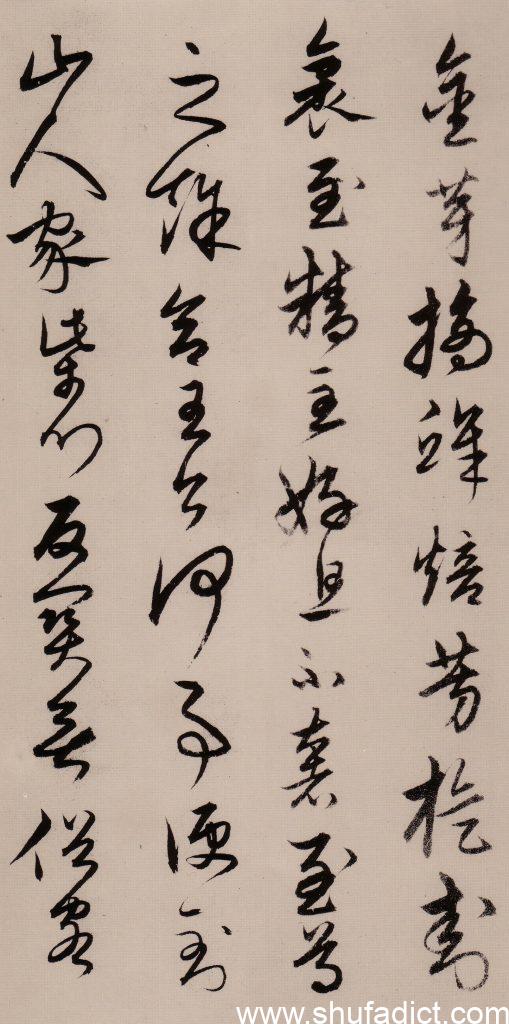 金芽摘鮮焙芳旋封
裹至精至好且不奢至尊
之餘合王公何事便到
山人家柴門反關無俗客
www.shufadict.com